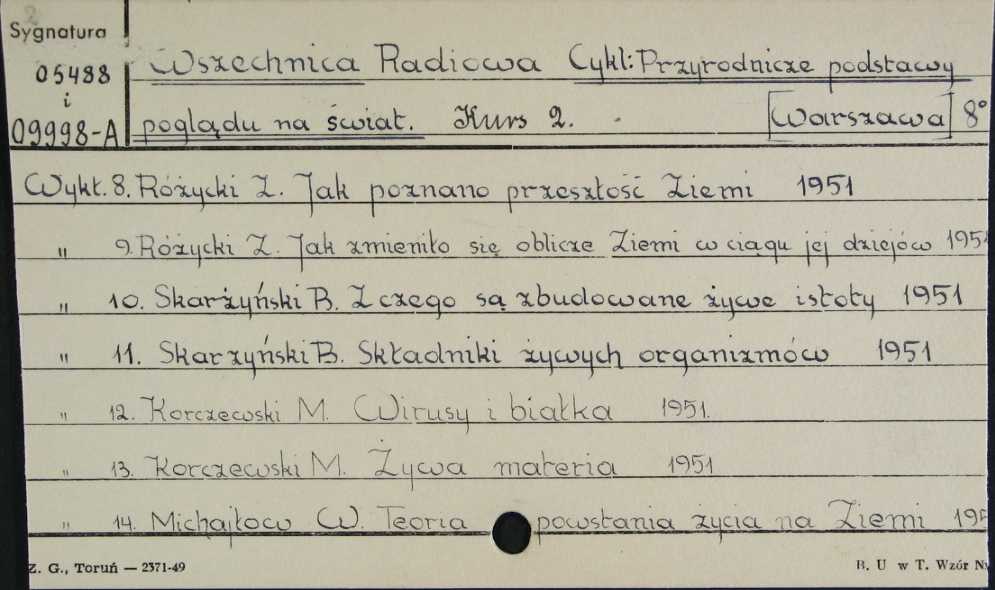 2
Sygnatura
05488
i
09998-A
Wszechnica Radiowa Cykl: Przyrodnicze podstawy
poglądu na świat. Kurs 2. [Warszawa] 8°
Wykł. 8. Różycki Z. Jak poznano przeszłość Ziemi 1951
" 9. Różycki Z. Jak zmieniło się oblicze Ziemi w ciągu jej dziejów 1951
" 10. Skarżyński B. Z czego są zbudowane żywe istoty 1951
" 11. Skarzyński B. Składniki żywych organizmów 1951
" 12. Korczewski M. Wirusy i białka 1951.
" 13. Korczewski M. Żywa materia 1951
" 14. Michajłow W. Teoria powstania życia na Ziemi 195
Z. G., Toruń — 2371-49 B. U w T. Wzór Nr